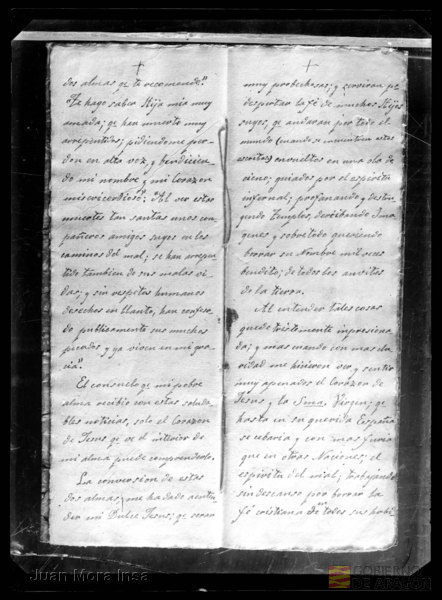 dos almas qe te recomende."
"Te hago saber Hija mia muy
amada; qe han muerto muy
arrepentidos; pidiendome per-
don en alta voz, y bendicien-
do mi nombre y mi Corazon
misericordioso". Al ver estas
muertes tan santas unos com-
pañeros amigos suyos en los
caminos del mal, se han arrepen-
tido tambien de sus malas vi-
das; y sin respetos humanos
desechos en llanto, han confesa-
do publicamente sus muchos
pecados y ya viven en mi gra-
cia".
El consuelo qe mi pobre
alma recibio con estas saluda-
bles noticias, solo el Corazon
de Jesus qe ve el interior de
mi alma puede comprenderlo.
La conversion de estas
dos almas; me ha dado a enten-
der mi Dulce Jesus; qe seran
muy probechosas; y serviran pa
despertar la fé de muchos Hijos
suyos, qe andaran por todo el
mundo (cuando se encuentren estos
escritos) envueltos en una ola de
cieno; guiados por el espiritu
infernal; profanando y destru-
yendo Templos, derribando Ima-
genes y sobretodo queriendo
borrar su Nombre mil veces
bendito; de todos los ambitos
de la tierra.
Al entender tales cosas
quede tristemente impresiona-
da; y mas cuando con mas cla-
ridad me hicieron ver y sentir
muy apenados el Corazon de
Jesus y la Sma. Virgen; qe
hasta en su querida España
se cebaria y con mas furia
que en otras Naciones; el
espiritu del mal; trabajando
sin descanso por borrar la
fé cristiana de todos sus habi-
Juan Mora Insa
GOBIERNO
DE ARAGON